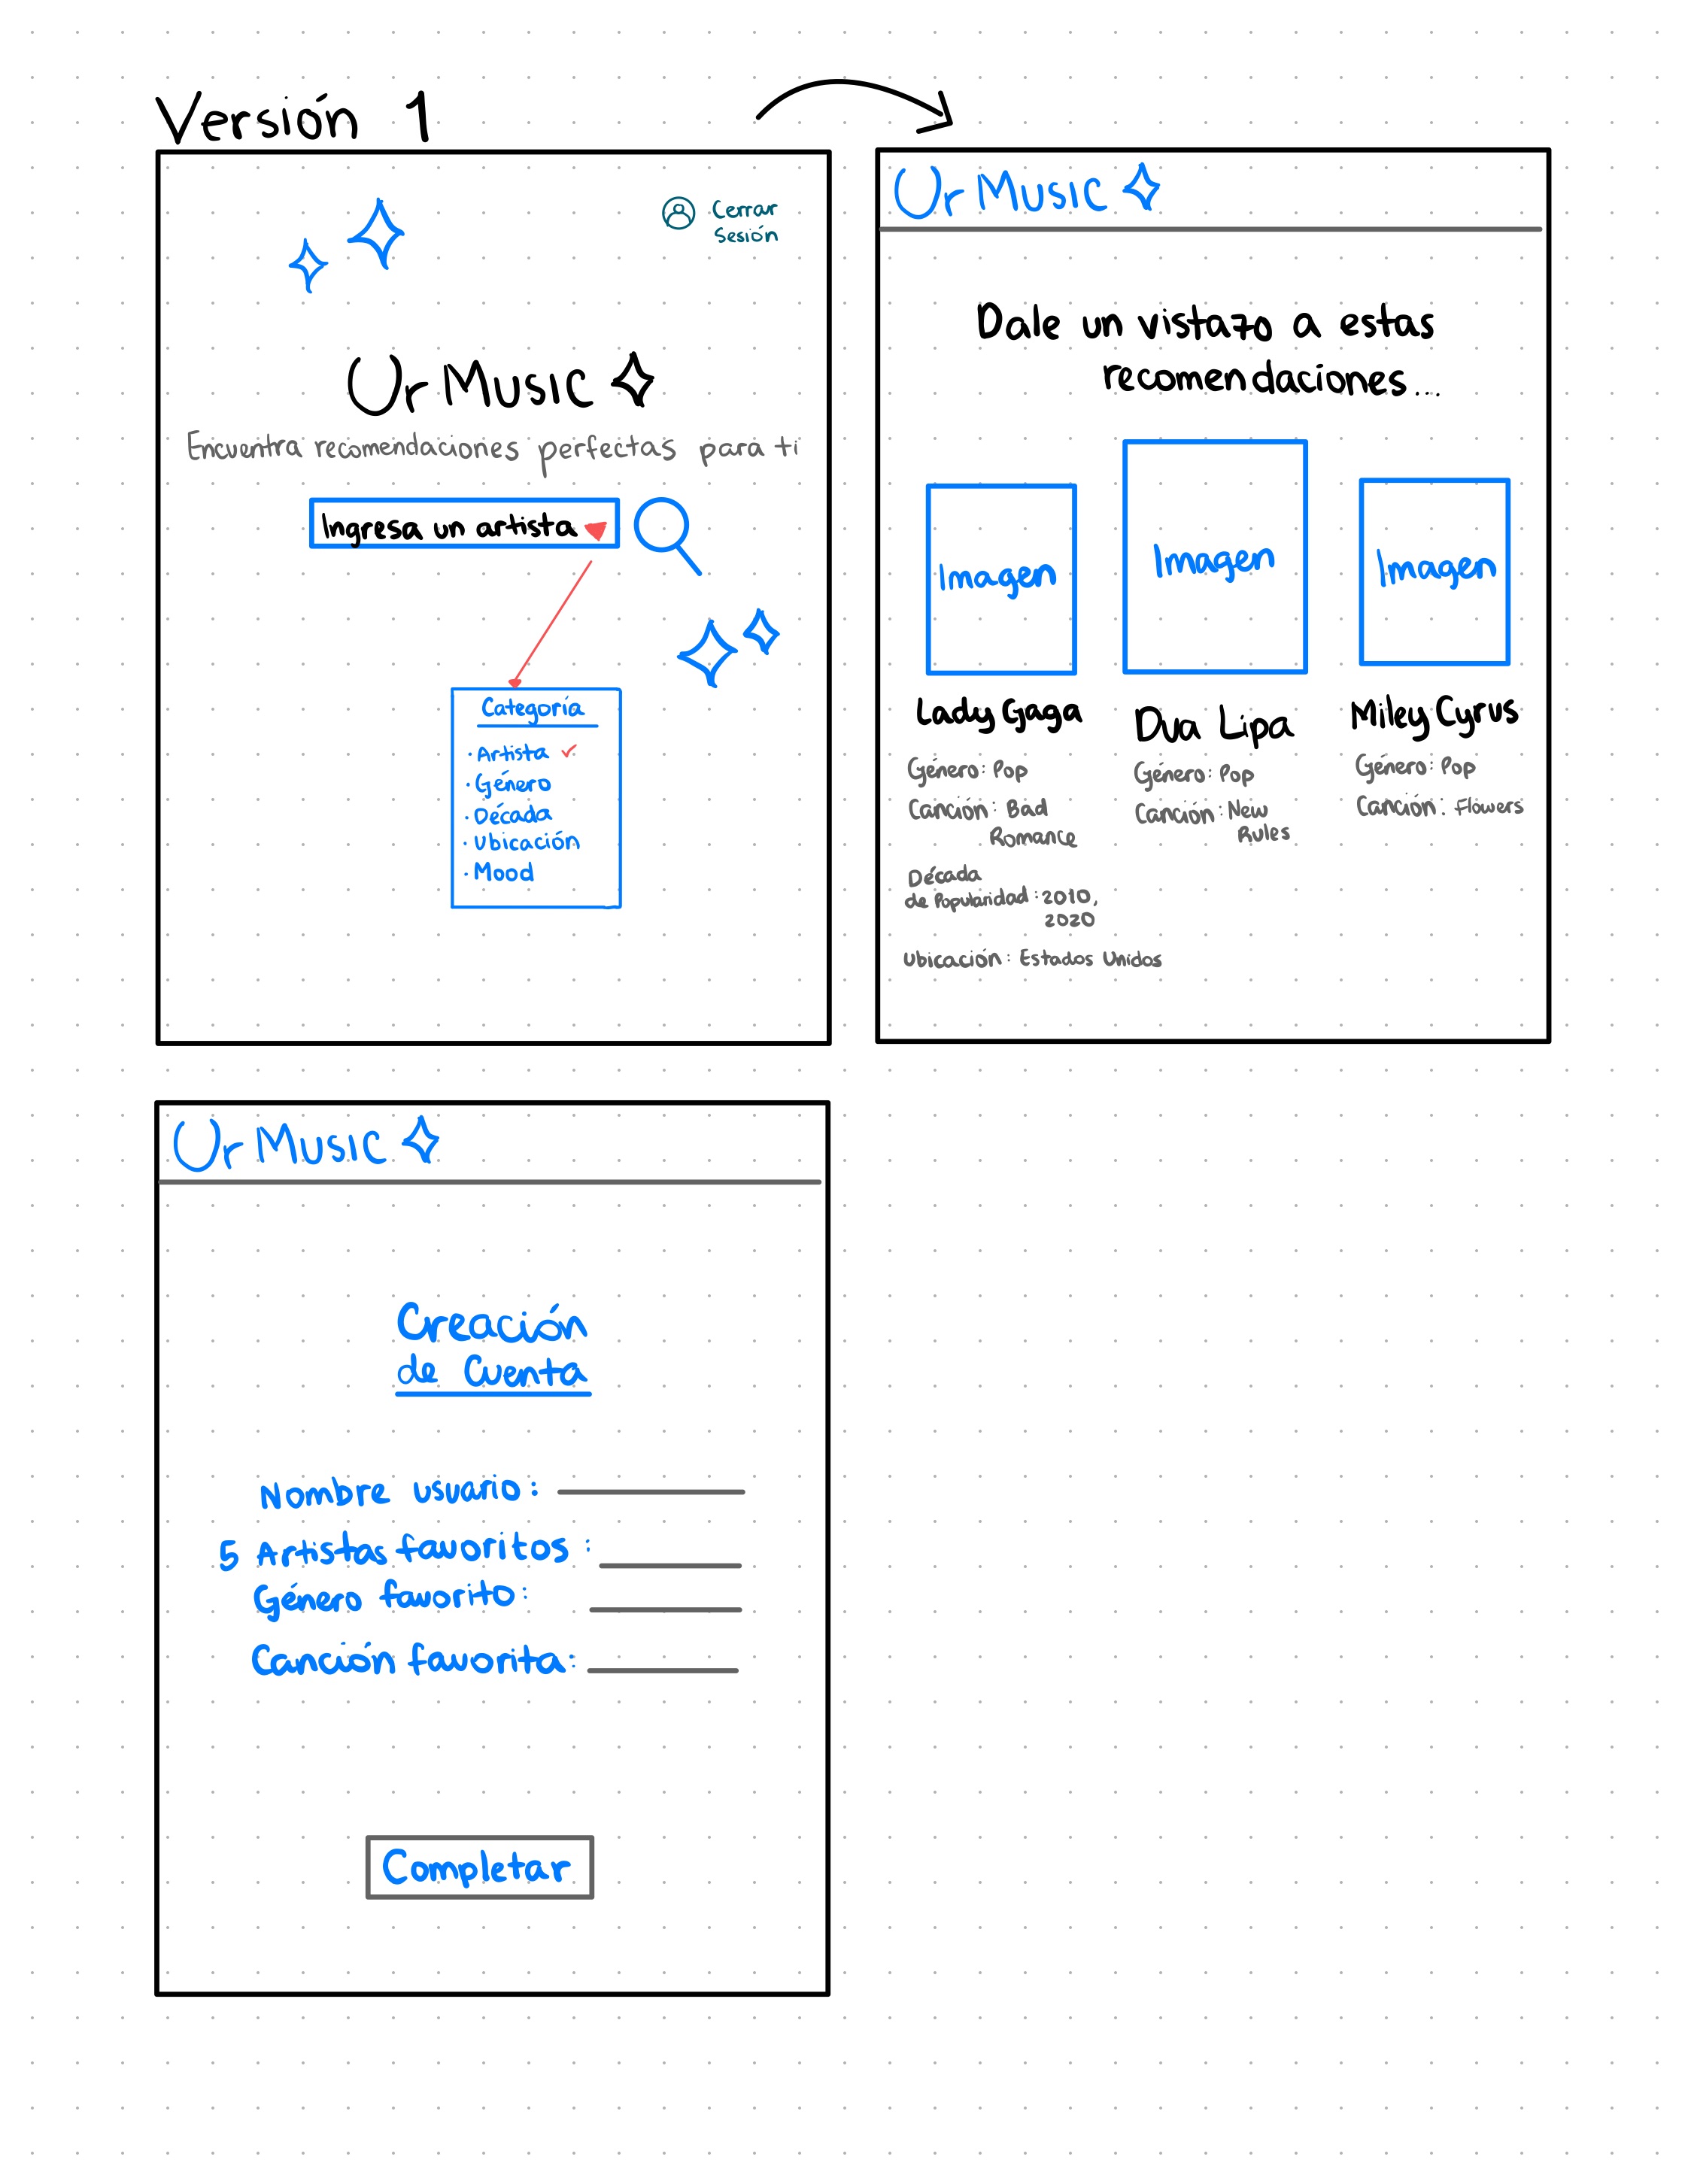 Versión 1
Cerrar
Sesión
Ur Music
Encuentra recomendaciones perfectas para ti
Ingresa un artista
Categoría
· Artista ✓
· Género
· Década
· Ubicación
· Mood
Ur Music
Dale un vistazo a estas
recomendaciones...
Imagen
Imagen
Imagen
Lady Gaga
Género: Pop
Canción: Bad
Romance
Década
de Popularidad: 2010,
2020
Ubicación: Estados Unidos
Dua Lipa
Género: Pop
Canción: New
Rules
Miley Cyrus
Género: Pop
Canción: Flowers
Ur Music
Creación
de Cuenta
Nombre usuario:
5 Artistas favoritos:
Género favorito:
Canción favorita:
Completar